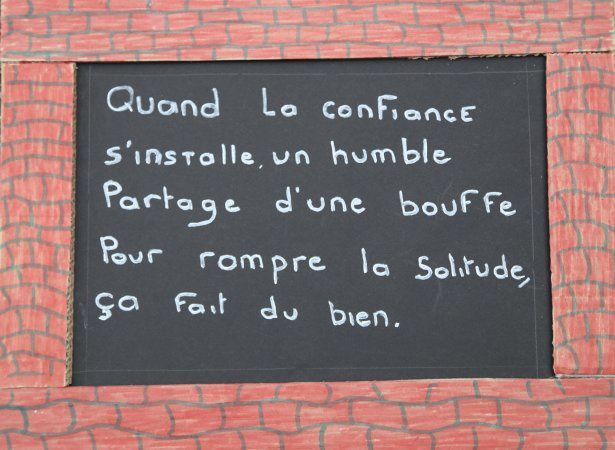 Quand la confiance
s'installe, un humble
Partage d'une bouffe
Pour rompre la Solitude,
ça fait du bien.